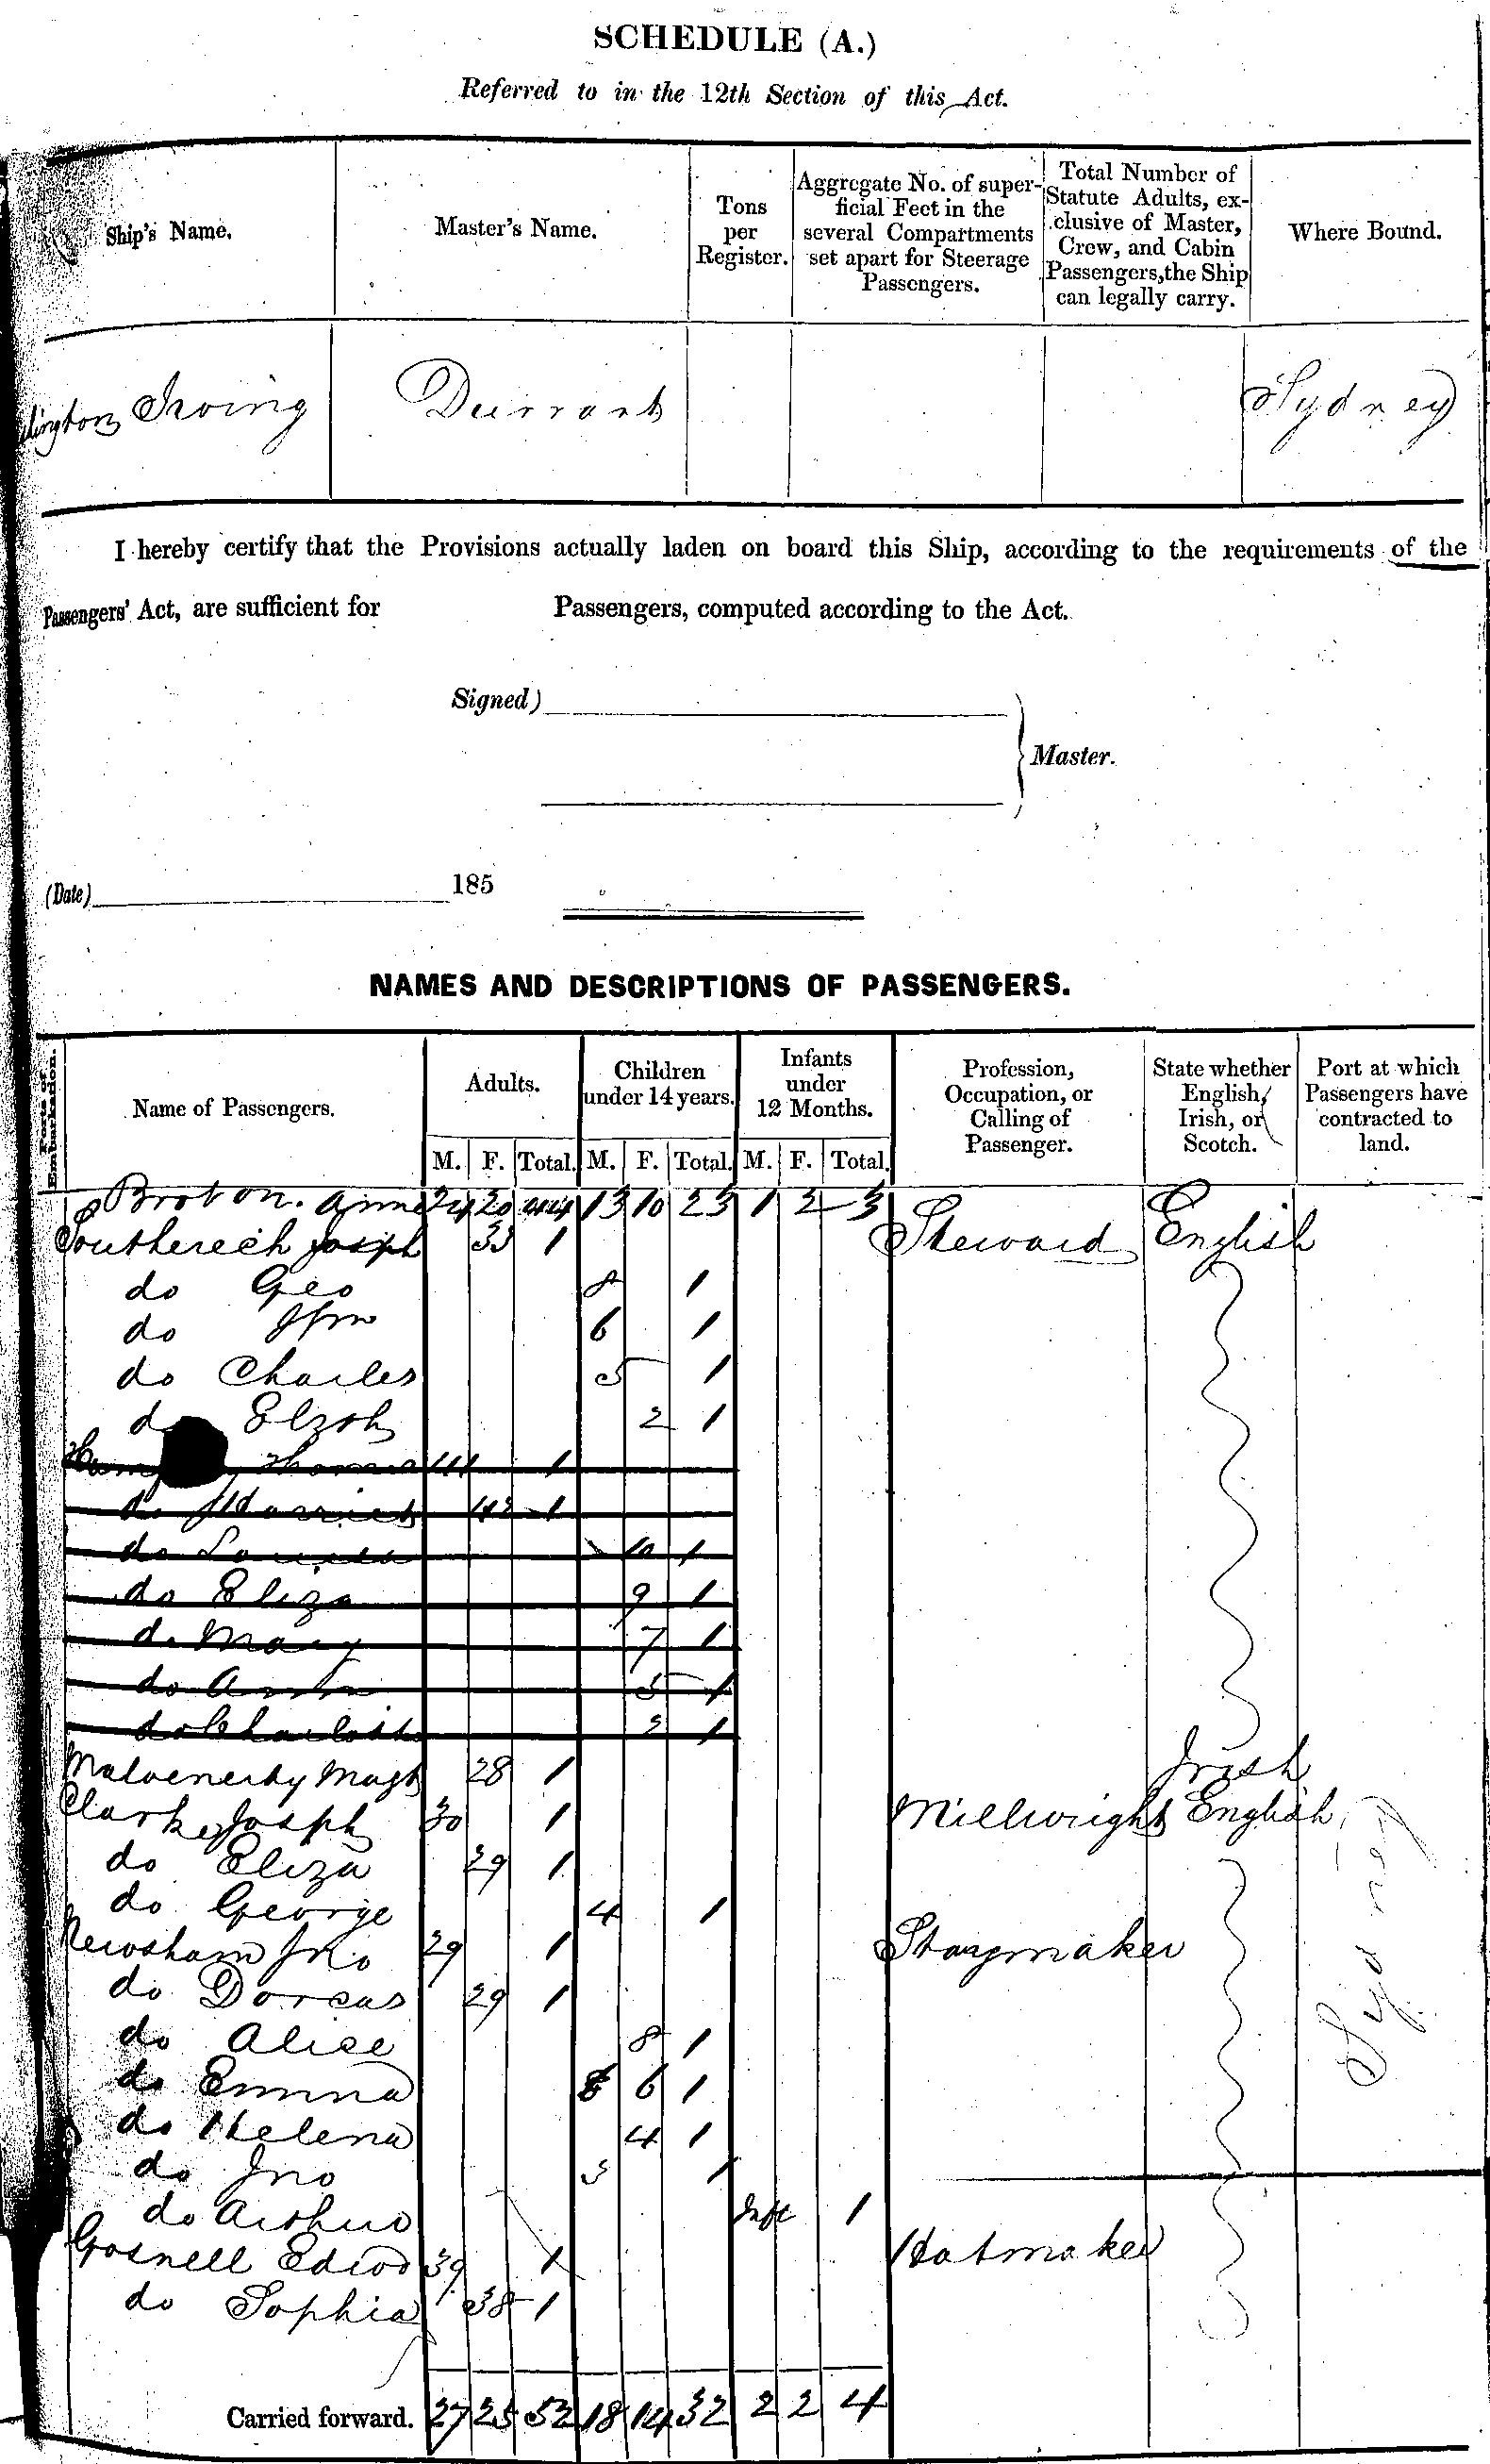 SCHEDULE (A.)
Referred to in the 12th Section of this Act.
Ship's Name.
Master's Name.
Tons per Register.
Aggregate No. of superficial Feet in the several Compartments set apart for Steerage Passengers.
Total Number of Statute Adults, exclusive of Master, Crew, and Cabin Passengers, the Ship can legally carry.
Where Bound.
Irving Durrant Sydney
I hereby certify that the Provisions actually laden on board this Ship, according to the requirements of the
Passengers' Act, are sufficient for Passengers, computed according to the Act.
Signed)
Master.
(Date) 185
NAMES AND DESCRIPTIONS OF PASSENGERS.
Ports of Embarkation.
Name of Passengers.
Adults.
Children under 14 years.
Infants under 12 Months.
Profession, Occupation, or Calling of Passenger.
State whether English, Irish, or Scotch.
Port at which Passengers have contracted to land.
M. F. Total. M. F. Total. M. F. Total.
24 20 44 13 10 23 1 2 3
Joseph 1 Steward English
do Geo 8 1
do 6 1
do Charles 5 1
do 2 1
Thomas 1
do Harriet 1
do 10 1
do Eliza 9 1
do Mary 7 1
do 5 1
do Charlotte 1
Magt 28 1 Irish
Clark Joseph 30 1 Millwright English
do Eliza 29 1
do George 4 1
Newsham Jno 29 1 Staymaker
do Dorcas 29 1
do Alice 8 1
do Emma 6 1
do Helena 4 1
do Jno 1
do Arthur Inft 1
Gosnell Edwd 39 1 Hatmaker
do Sophia 38 1
Sydney
Carried forward. 27 25 52 18 14 32 2 2 4